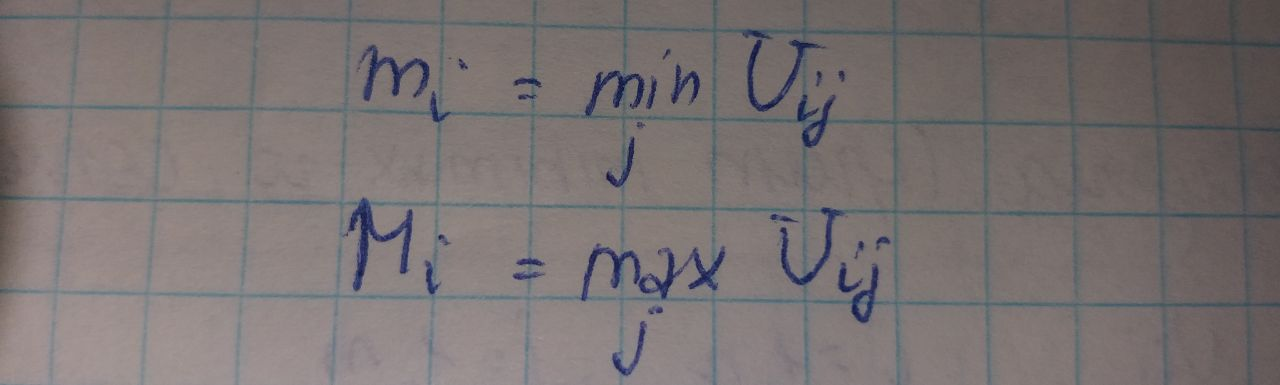 m_i = min_j U_ij
M_i = max_j U_ij